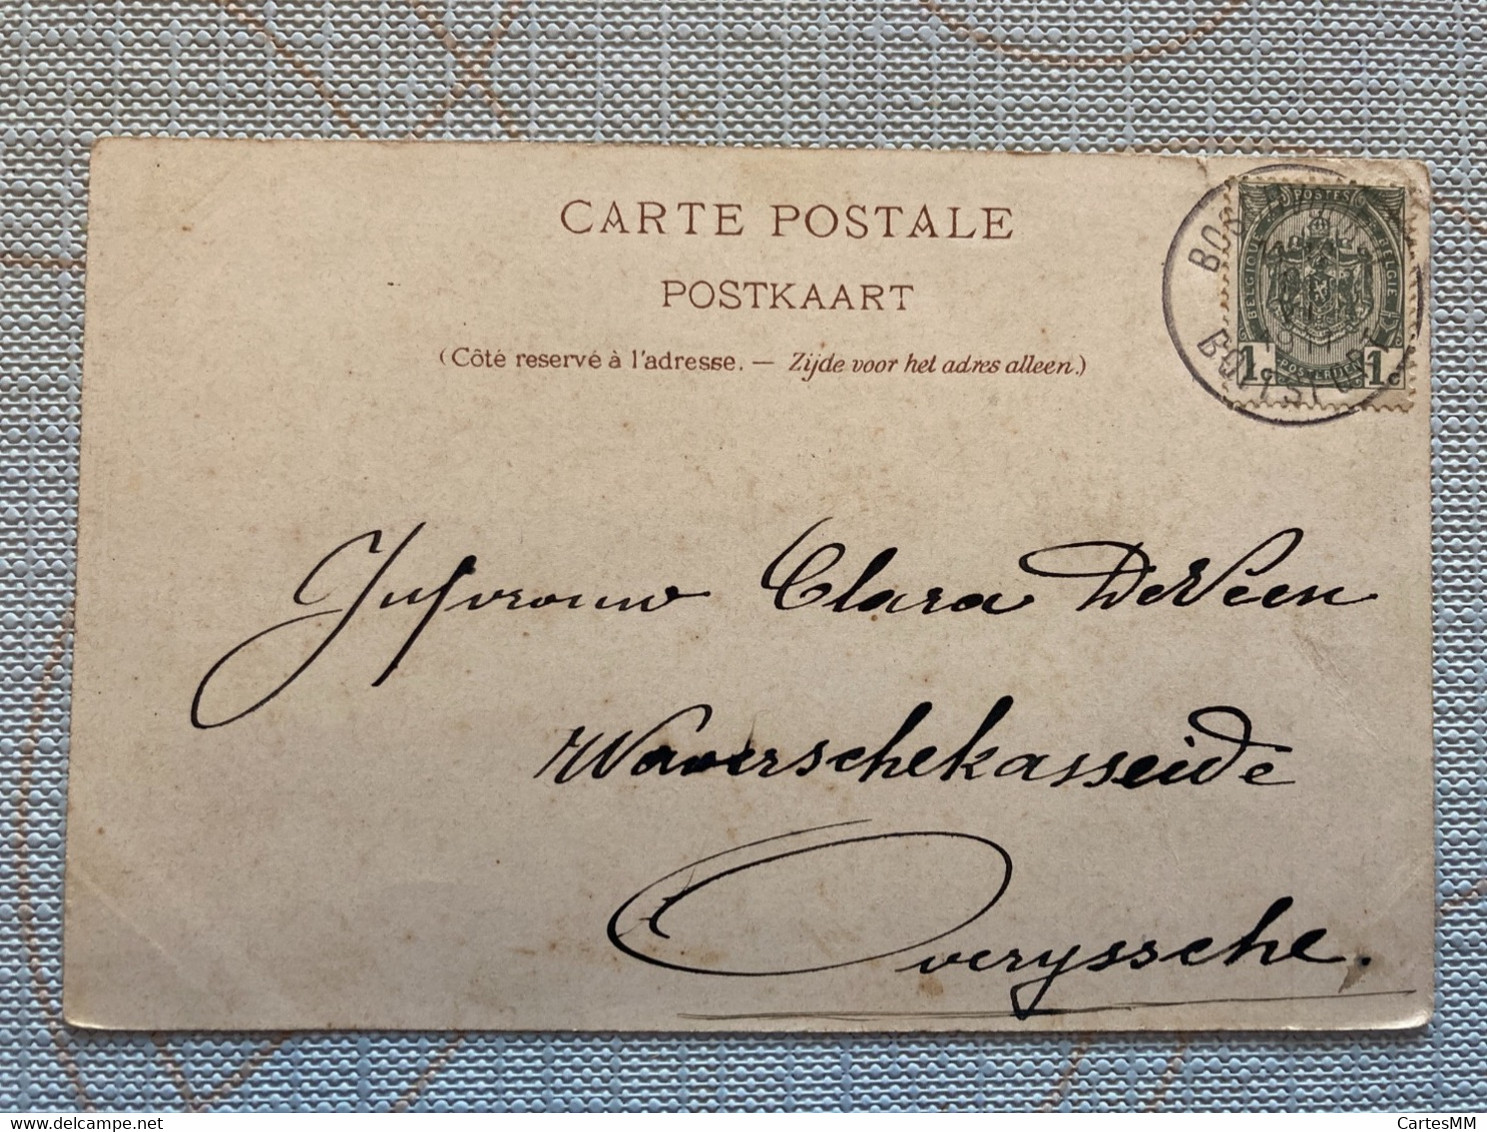 CARTE POSTALE
POSTKAART
(Côté reservé à l'adresse. — Zijde voor het adres alleen.)
POSTES
BELGIQUE
BELGIE
1c POSTERIJEN 1c
BOITSFORT
Jufvrouw Clara DeVeen
Waverschekasseide
Overyssche.
CartesMM